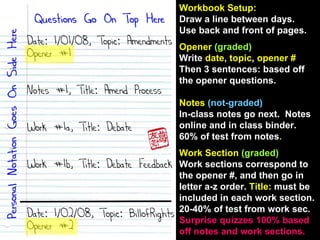 Questions Go On Top Here
Personal Notation Goes On Side Here
Date: 1/01/08, Topic: Amendments
Opener #1
Notes #1, Title: Amend Process
Work #1a, Title: Debate
Work #1b, Title: Debate Feedback
Date: 1/02/08, Topic: BillofRights
Opener #2
Workbook Setup:
Draw a line between days.
Use back and front of pages.
Opener (graded)
Write date, topic, opener #
Then 3 sentences: based off
the opener questions.
Notes (not-graded)
In-class notes go next. Notes
online and in class binder.
60% of test from notes.
Work Section (graded)
Work sections correspond to
the opener #, and then go in
letter a-z order. Title: must be
included in each work section.
20-40% of test from work sec.
Surprise quizzes 100% based
off notes and work sections.